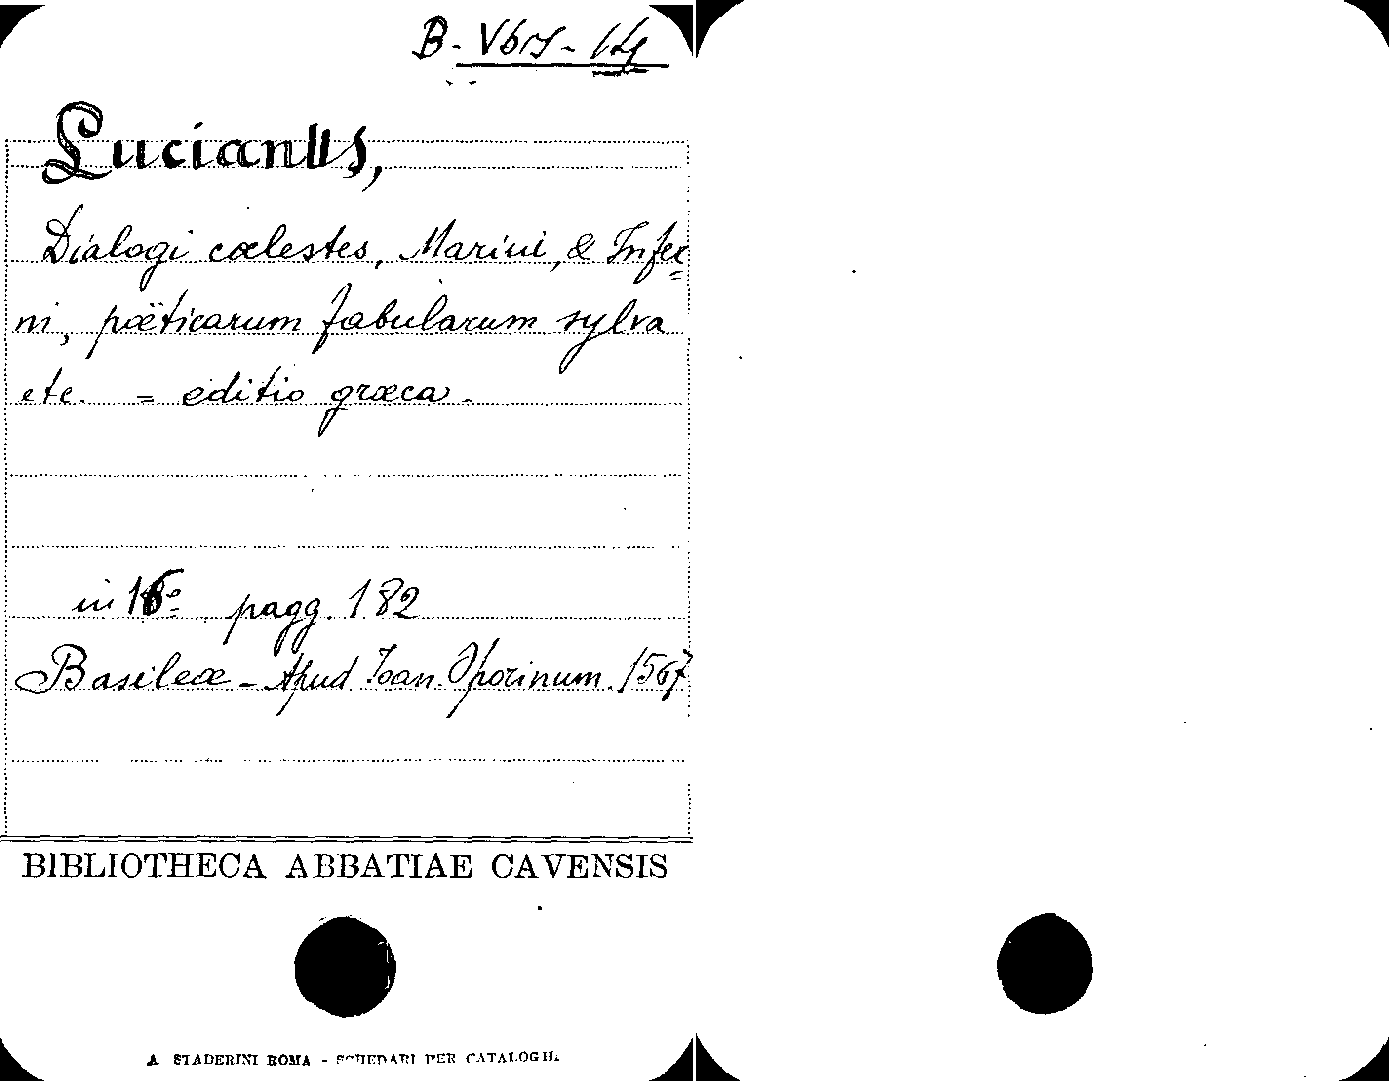 Lucianus,
Dialogi cœlestes, Marini, & Infer=
ni, poëticarum fabularum sylva
etc. = editio græca.
in 16º pagg. 182
Basileæ - Apud Ioan. Oporinum. 1567
BIBLIOTHECA ABBATIAE CAVENSIS
A. STADERINI ROMA - SCHEDARI PER CATALOGHI